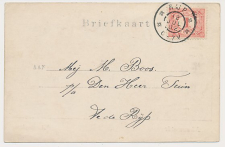 Briefkaart
AAN
Mej M. Boos.
p/a Den Heer Tuin
De Rijp